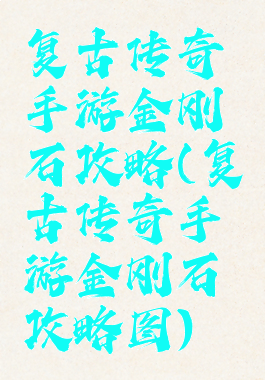 复古传奇
手游金刚
石攻略(复
古传奇手
游金刚石
攻略图)